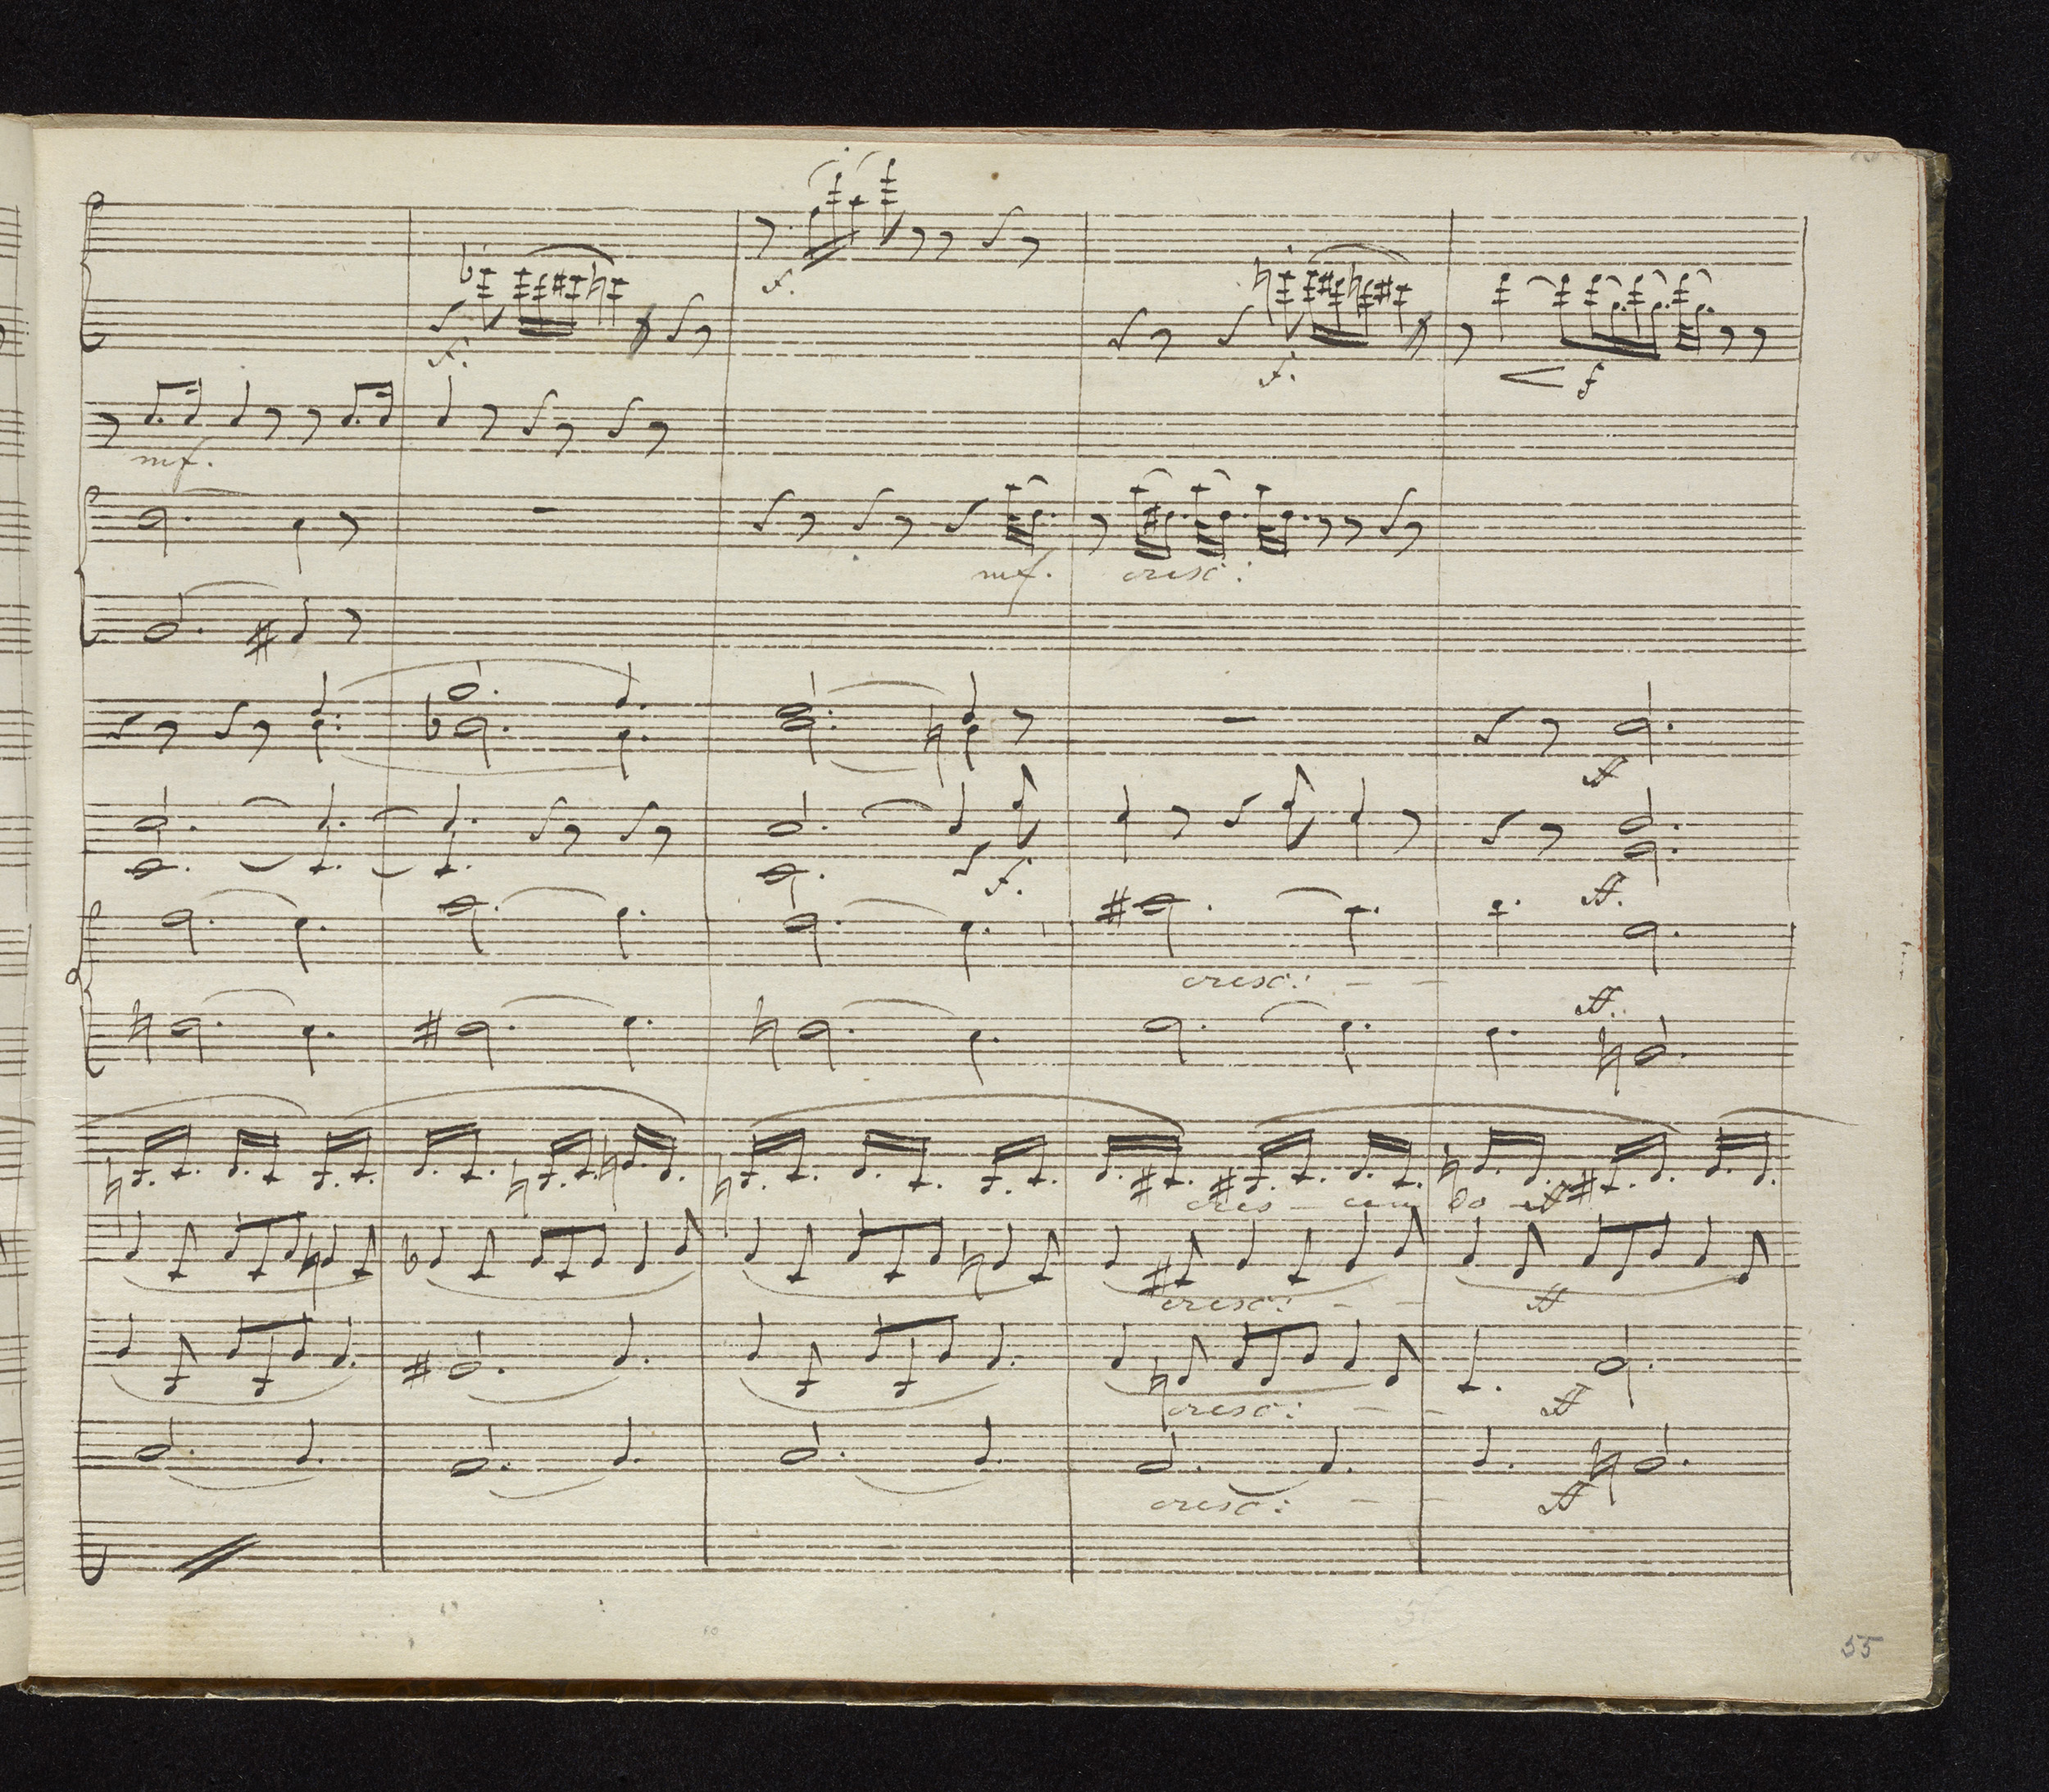 f.
f.
f.
f
mf.
mf. cresc:
ff
f.
ff.
cresc: - -
ff.
cres - cen do ff
cresc: - - ff
cresc: - - ff
cresc: - - ff
55